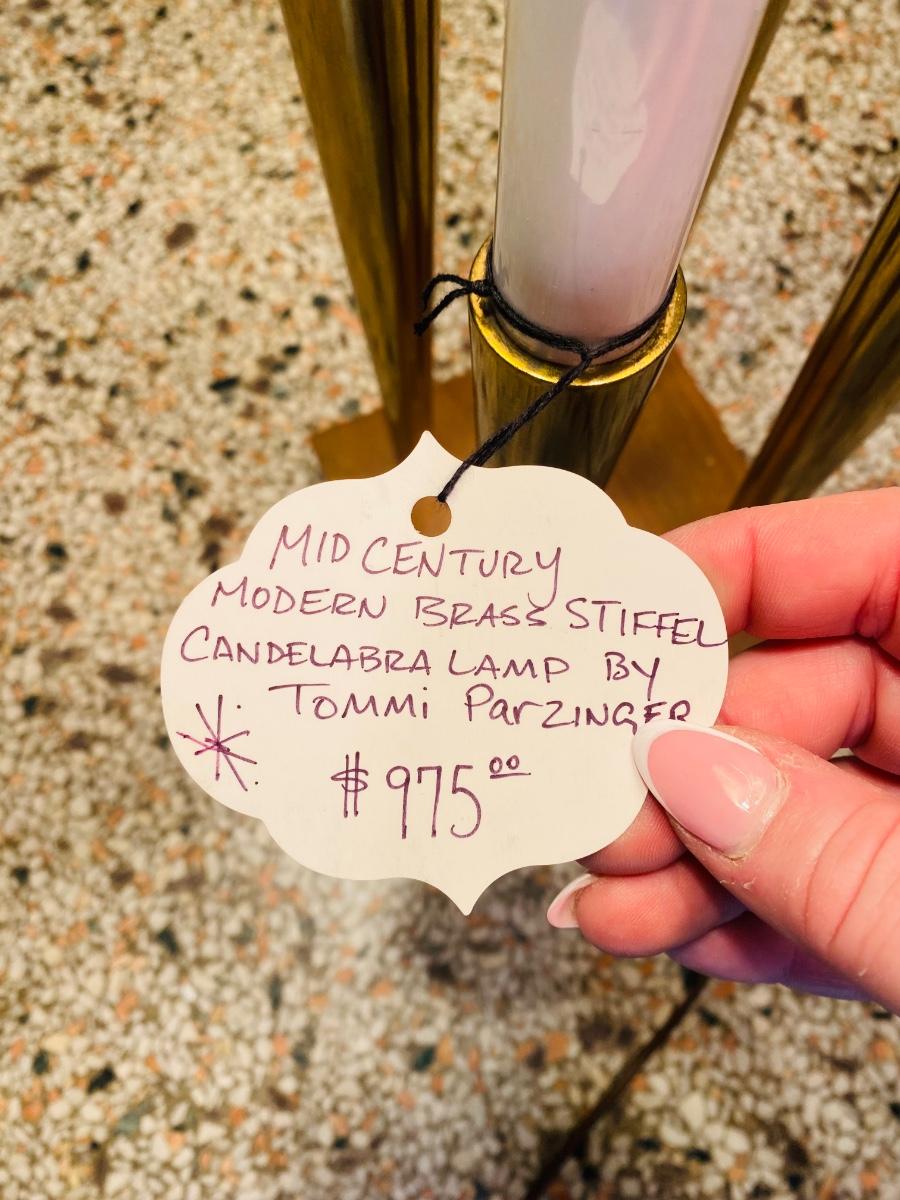 MID CENTURY
MODERN BRASS STIFFEL
CANDELABRA LAMP BY
TOMMi ParZINGER
$975.00